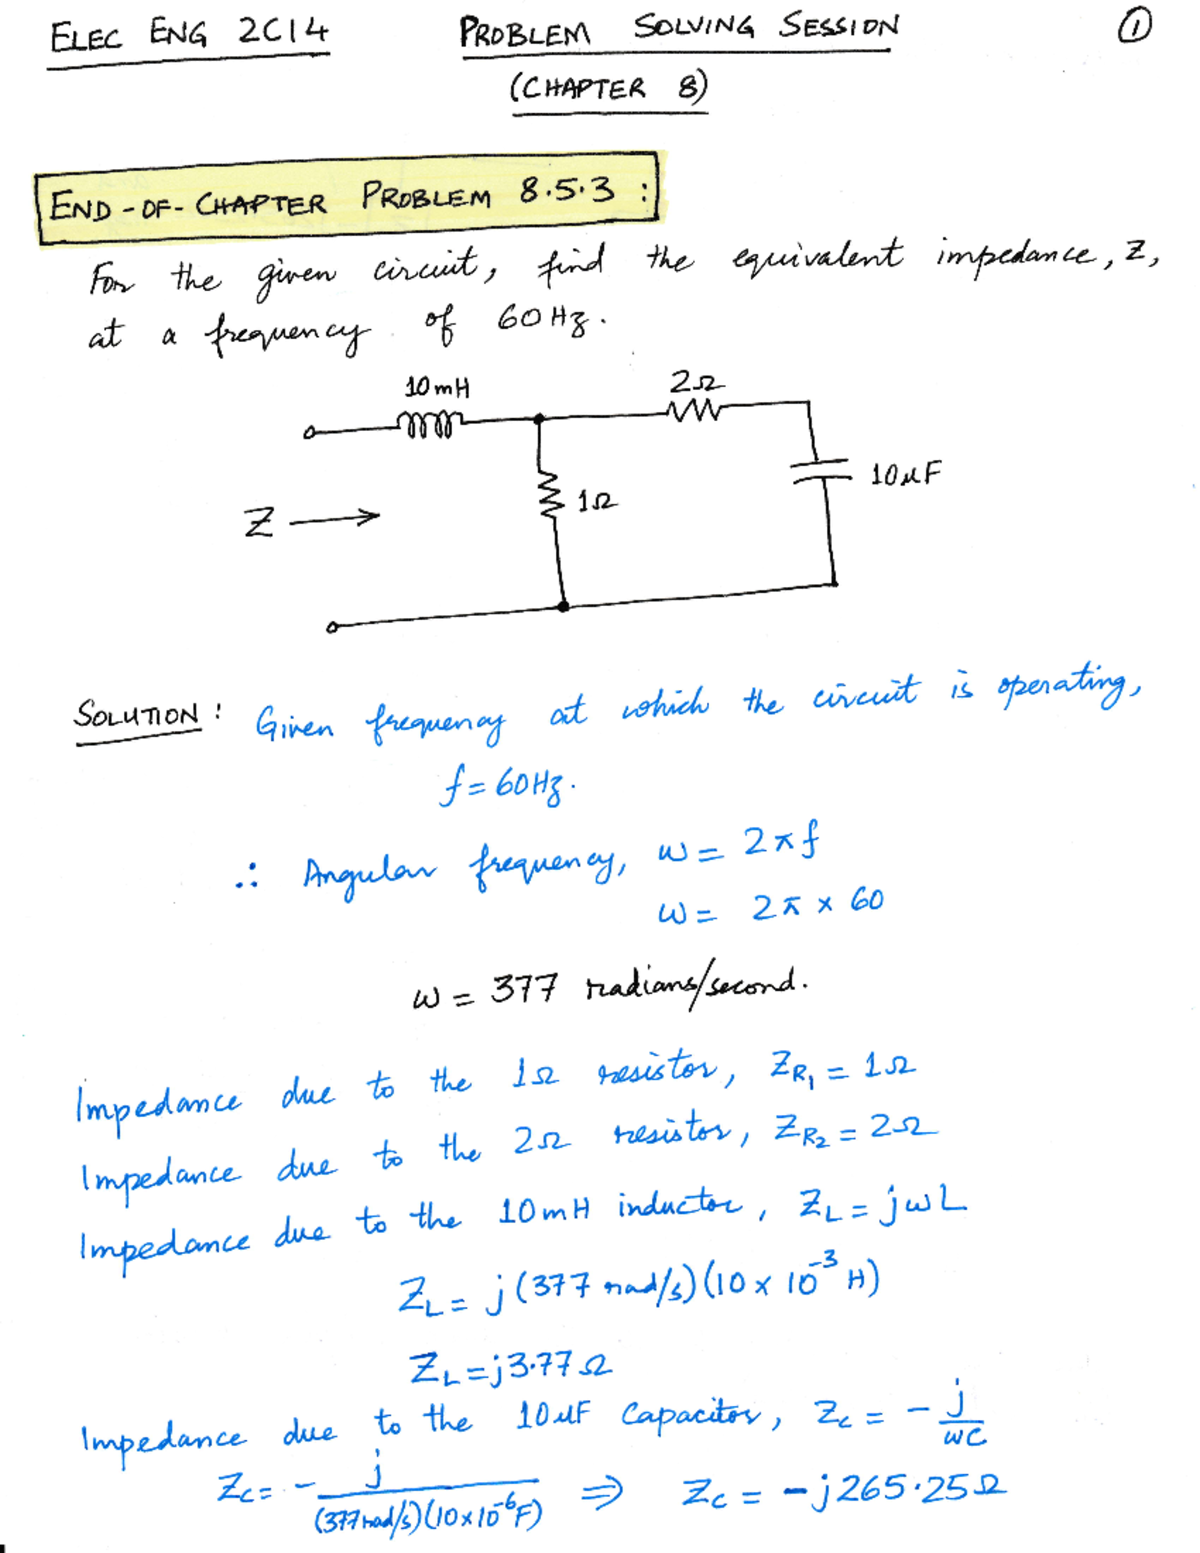 ELEC ENG 2CI4 PROBLEM SOLVING SESSION ①
(CHAPTER 8)
END-OF-CHAPTER PROBLEM 8.5.3 :
For the given circuit, find the equivalent impedance, Z,
at a frequency of 60Hz.
10mH 2Ω
1Ω 10μF
Z →
SOLUTION : Given frequency at which the circuit is operating,
f = 60Hz.
∴ Angular frequency, ω = 2πf
ω = 2π × 60
ω = 377 radians/second.
Impedance due to the 1Ω resistor, Z_R₁ = 1Ω
Impedance due to the 2Ω resistor, Z_R₂ = 2Ω
Impedance due to the 10mH inductor, Z_L = jωL
Z_L = j(377 rad/s)(10 × 10⁻³ H)
Z_L = j3.77Ω
Impedance due to the 10μF Capacitor, Z_c = - j/ωC
Z_c = - j/(377rad/s)(10×10⁻⁶F) ⇒ Z_c = -j265.25Ω